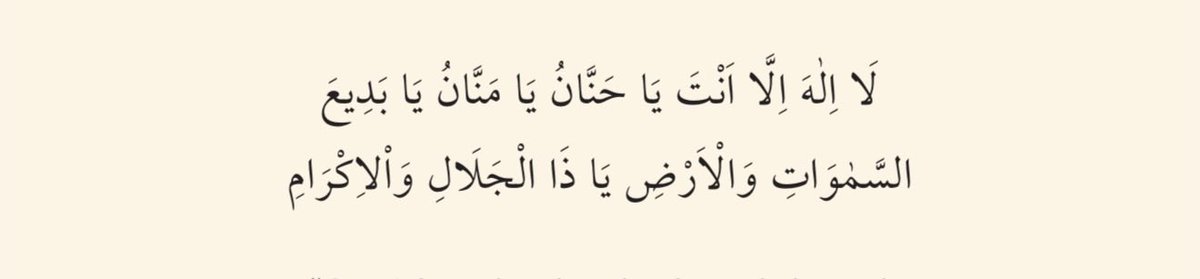 لَا اِلٰهَ اِلَّا اَنْتَ يَا حَنَّانُ يَا مَنَّانُ يَا بَدِيعَ
السَّمٰوَاتِ وَالْاَرْضِ يَا ذَا الْجَلَالِ وَاْلاِكْرَامِ